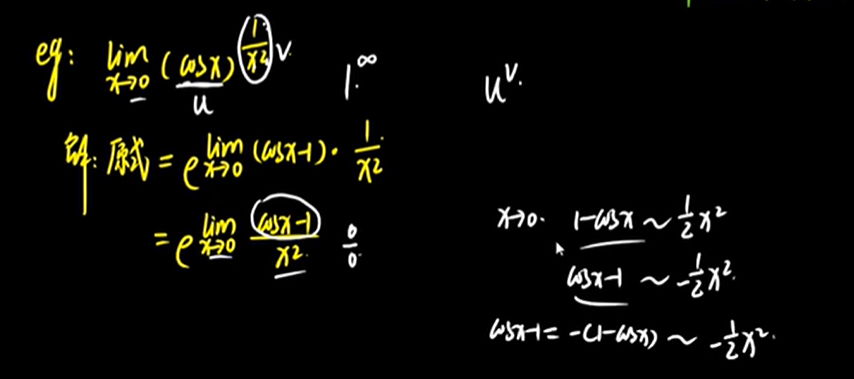 eg: lim x→0 (cosx)^(1/x²) v 1^∞ u^v.
u
解: 原式 = e^(lim x→0 (cosx-1)·1/x²)
= e^(lim x→0 (cosx-1)/x²) 0/0
x→0. 1-cosx ~ 1/2 x²
cosx-1 ~ -1/2 x².
cosx-1 = -(1-cosx) ~ -1/2 x².